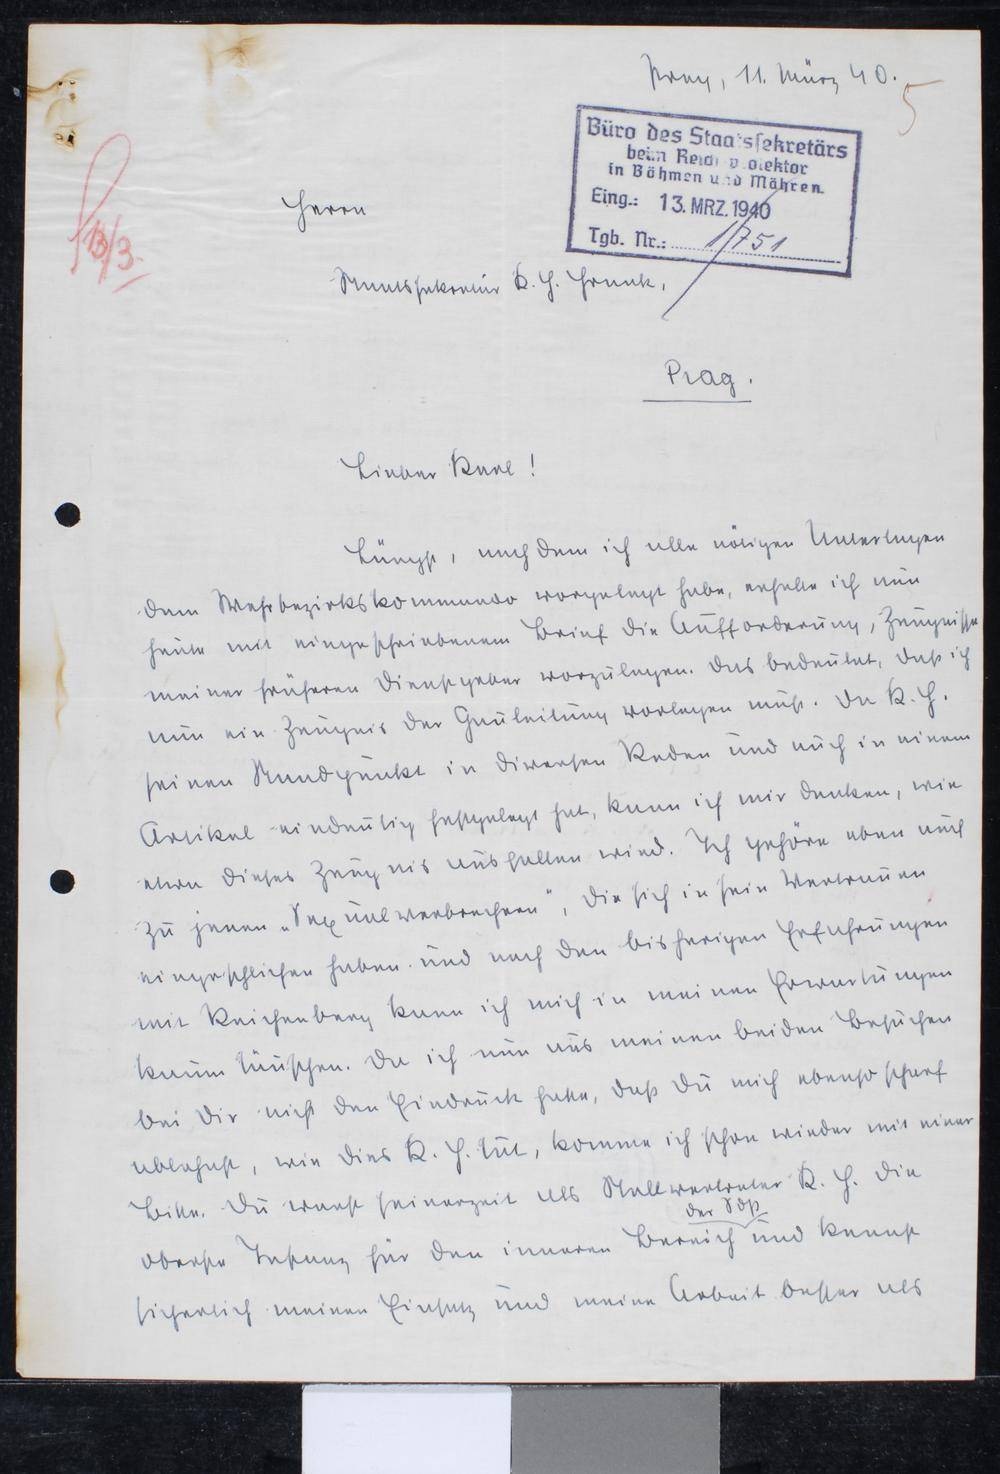 Prag, 11. März 40.
5
Büro des Staatssekretärs
beim Reichsprotektor
in Böhmen und Mähren.
Eing.: 13. MRZ. 1940
Tgb. Nr.: 1751
13/3.
Herrn
Staatssekretär K. H. Frank,
Prag.
Lieber Karl!
Längst, nachdem ich alle nötigen Unterlagen
dem Wehrbezirkskommando vorgelegt habe, erhalte ich nun
heute mit eingeschriebenem Brief die Aufforderung, Zeugnisse
meiner früheren Dienstgeber vorzulegen. Das bedeutet, daß ich
nun ein Zeugnis der Gauleitung vorlegen muß. Da K. H.
seinen Standpunkt in diversen Reden und auch in einem
Artikel eindeutig festgelegt hat, kann ich mir denken, wie
etwa dieses Zeugnis ausfallen wird. Ich gehöre eben auch
zu jenen „Sexualverbrechern", die sich in sein Vertrauen
eingeschlichen haben und nach den bisherigen Erfahrungen
mit Reichenberg kann ich mich in meinen Erwartungen
kaum täuschen. Da ich nun aus meinen beiden Besuchen
bei Dir nicht den Eindruck habe, daß Du mich ebenso scharf
ablehnst, wie dies K. H. tut, komme ich schon wieder mit einer
Bitte. Du warst seinerzeit als Stellvertreter K. H. die
oberste Instanz für den inneren Bereich der SdP und kennst
sicherlich meinen Einsatz und meine Arbeit besser als